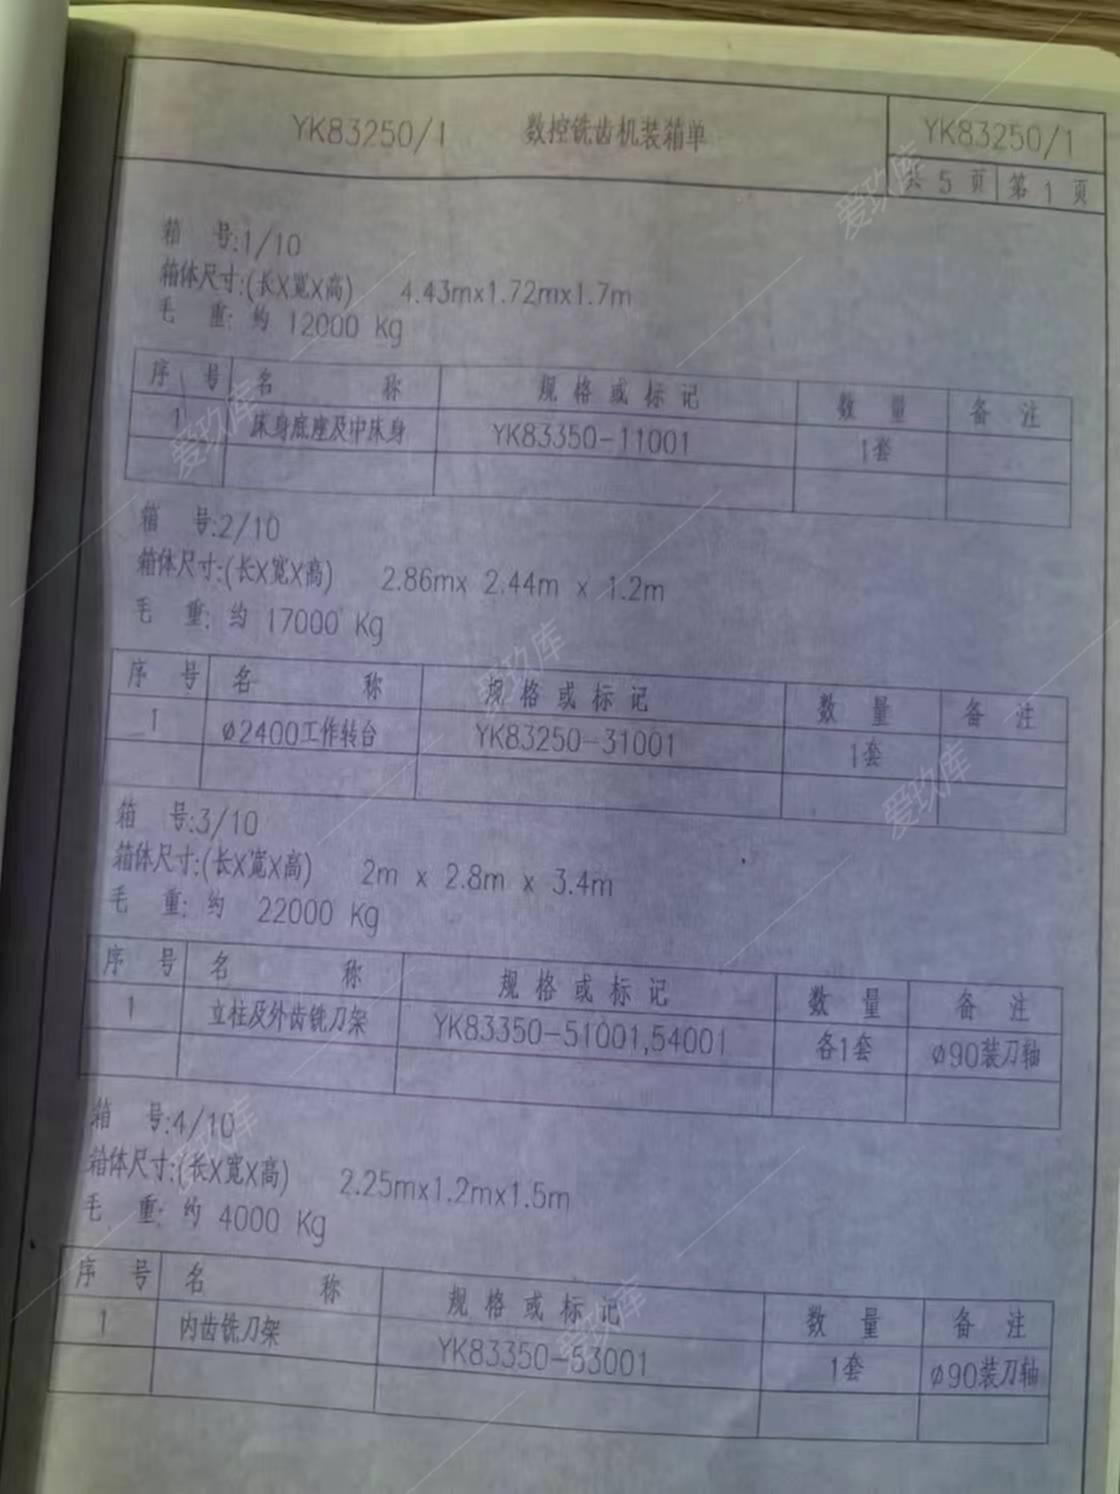 YK83250/1 数控铣齿机装箱单 YK83250/1
共 5 页 第 1 页
箱 号:1/10
箱体尺寸:(长X宽X高) 4.43mx1.72mx1.7m
毛 重: 约 12000 Kg
序 号 名 称 规 格 或 标 记 数 量 备 注
1 床身底座及中床身 YK83350-11001 1套
箱 号:2/10
箱体尺寸:(长X宽X高) 2.86mx 2.44m x 1.2m
毛 重: 约 17000 Kg
序 号 名 称 规 格 或 标 记 数 量 备 注
1 ø2400工作转台 YK83250-31001 1套
箱 号:3/10
箱体尺寸:(长X宽X高) 2m x 2.8m x 3.4m
毛 重: 约 22000 Kg
序 号 名 称 规 格 或 标 记 数 量 备 注
1 立柱及外齿铣刀架 YK83350-51001,54001 各1套 ø90装刀轴
箱 号:4/10
箱体尺寸:(长X宽X高) 2.25mx1.2mx1.5m
毛 重: 约 4000 Kg
序 号 名 称 规 格 或 标 记 数 量 备 注
1 内齿铣刀架 YK83350-53001 1套 ø90装刀轴
爱玖库
爱玖库
爱玖库
爱玖库
爱玖库
爱玖库